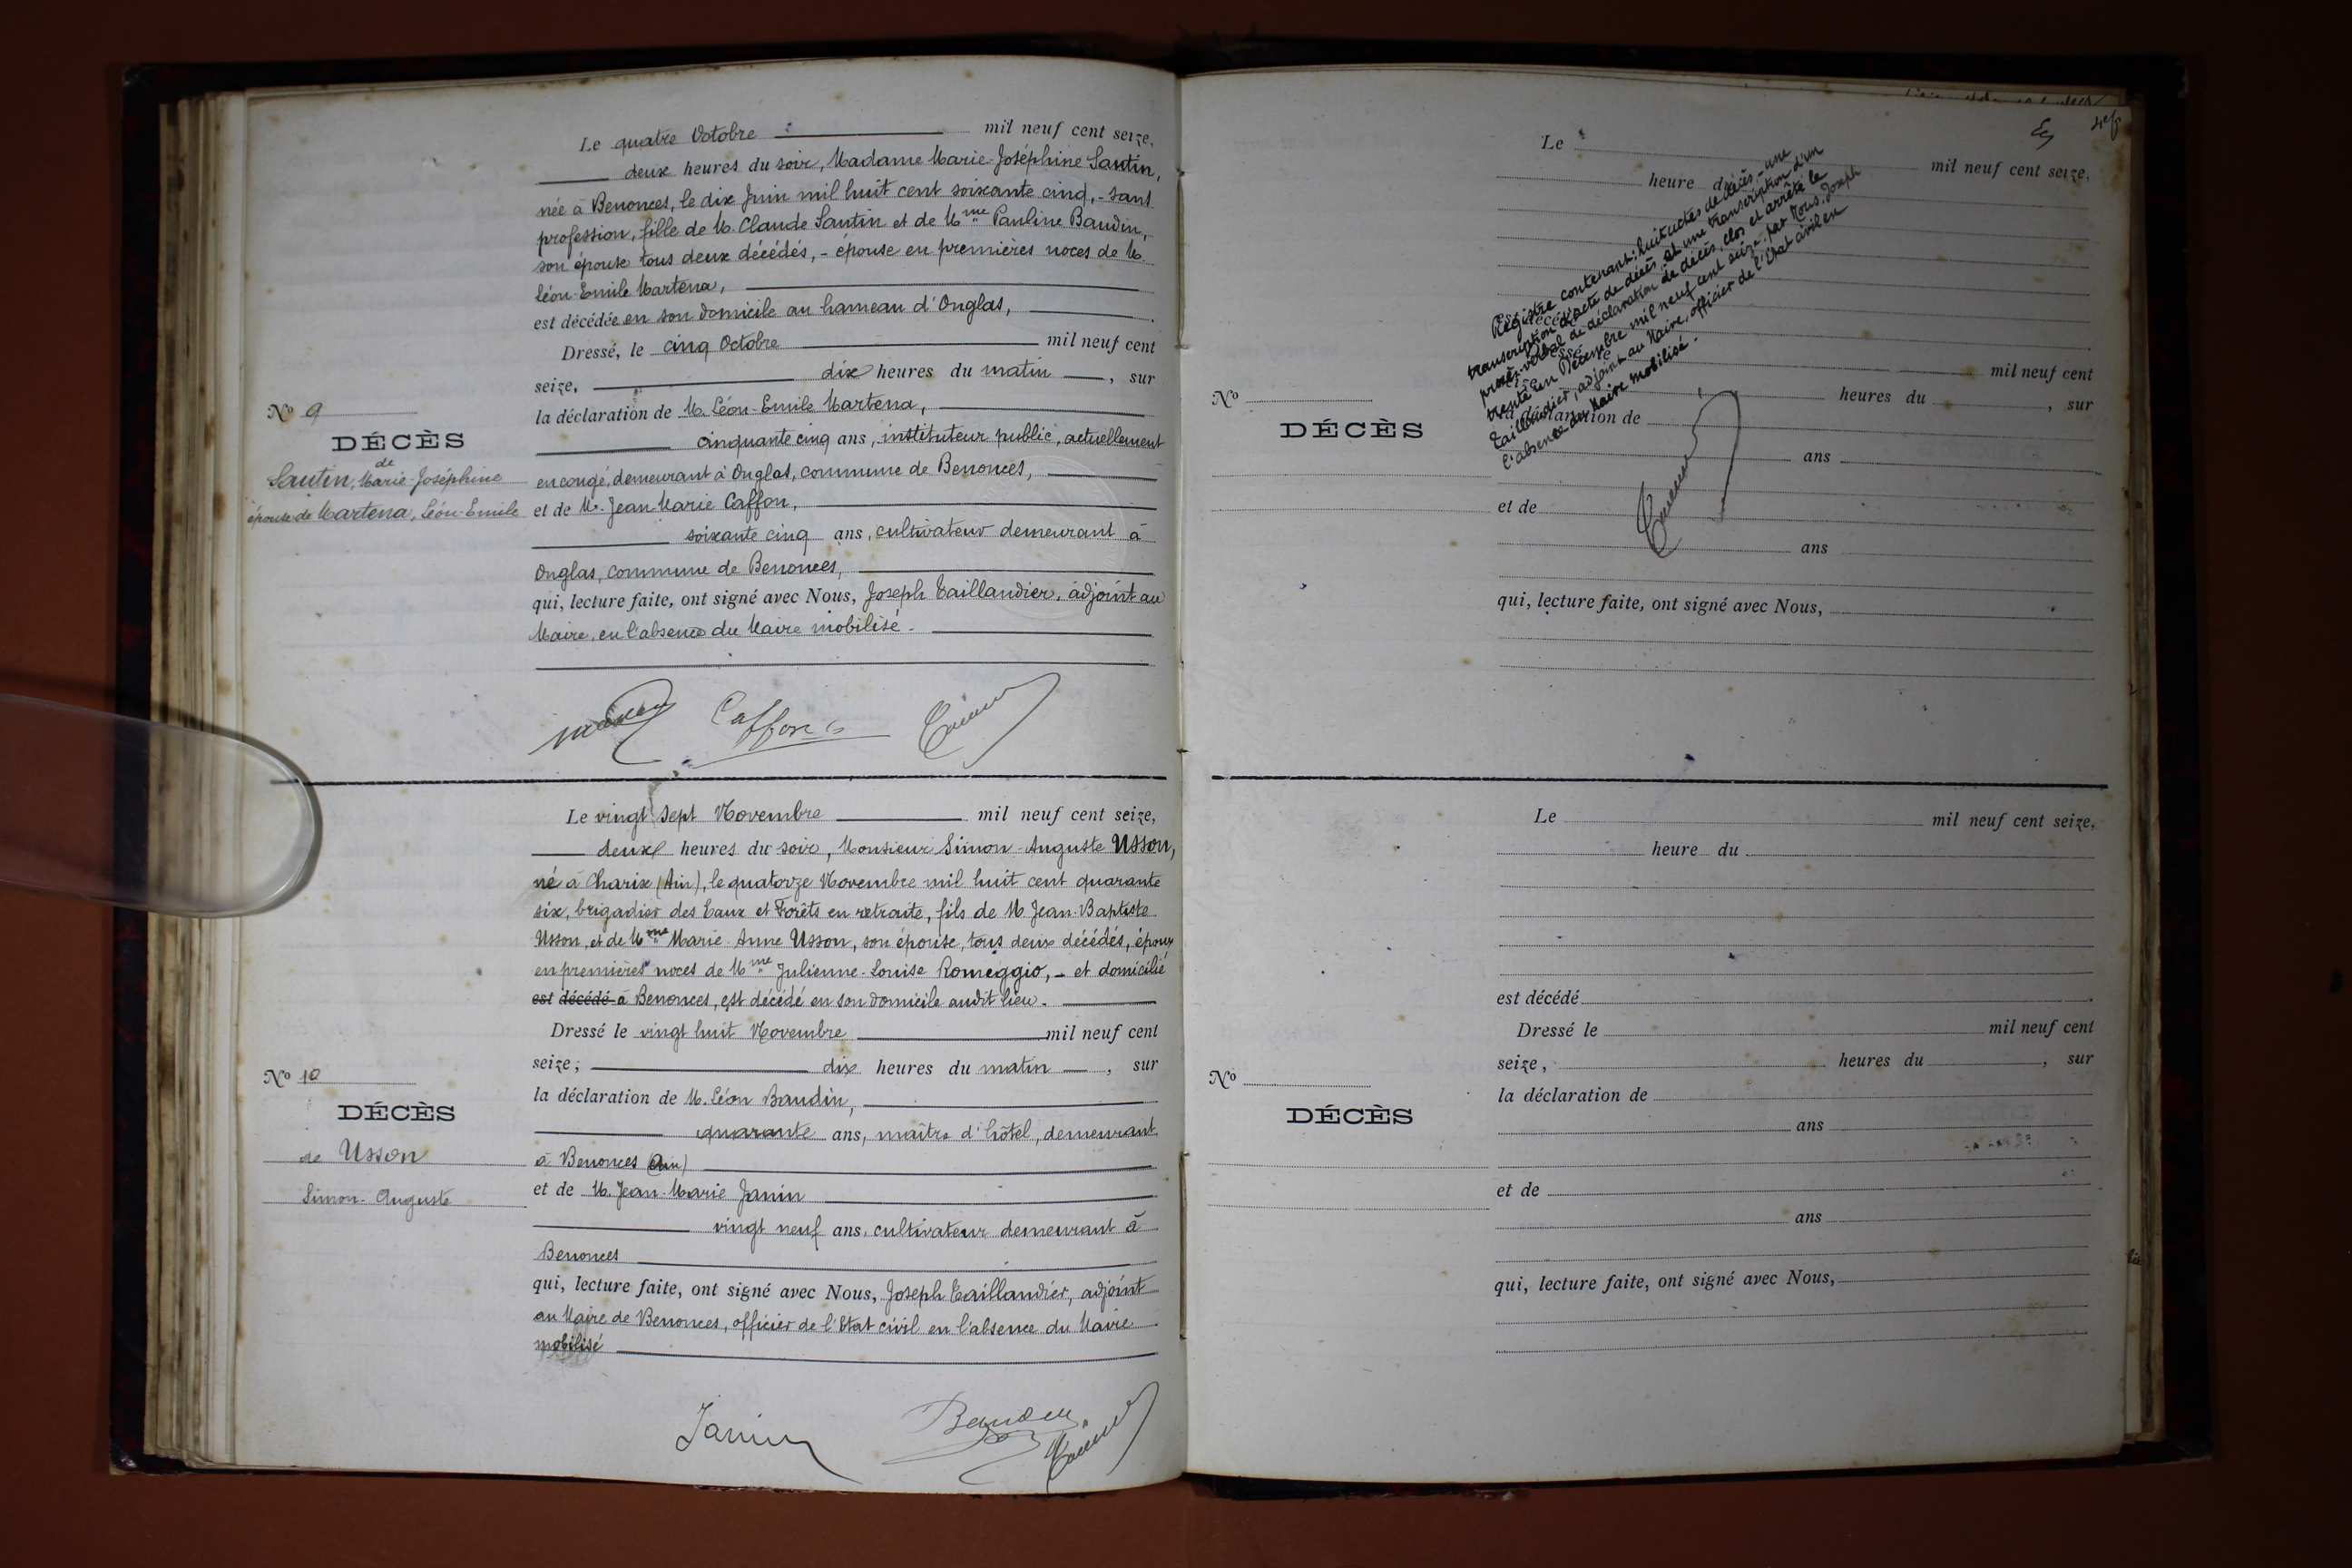 Le quatre Octobre mil neuf cent seize,
deux heures du soir, Madame Marie-Joséphine Santin,
née à Benonces, le dix Juin mil huit cent soixante cinq, - sans
profession, fille de M. Claude Santin et de Mme Pauline Baudin,
son épouse tous deux décédés, - épouse en premières noces de M.
Léon-Emile Martena,
est décédée en son domicile au hameau d'Onglas,
Dressé, le cinq Octobre mil neuf cent
seize, dix heures du matin, sur
la déclaration de M. Léon-Emile Martena,
cinquante cinq ans, instituteur public, actuellement
en congé, demeurant à Onglas, commune de Benonces,
et de M. Jean-Marie Caffon,
soixante cinq ans, cultivateur demeurant à
Onglas, commune de Benonces,
qui, lecture faite, ont signé avec Nous, Joseph Taillandier, adjoint au
Maire, en l'absence du Maire mobilisé.
No 9
DÉCÈS
de
Santin, Marie-Joséphine
épouse de Martena, Léon-Emile
Caffon
Le vingt sept Novembre mil neuf cent seize,
deux heures du soir, Monsieur Simon-Auguste Usson,
né à Charix (Ain), le quatorze Novembre mil huit cent quarante
six, brigadier des Eaux et Forêts en retraite, fils de M. Jean-Baptiste
Usson, et de Mme Marie-Anne Usson, son épouse, tous deux décédés, époux
en premières noces de Mme Julienne-Louise Romeggio, - et domicilié
est décédé à Benonces, est décédé en son domicile audit lieu.
Dressé le vingt huit Novembre mil neuf cent
seize; dix heures du matin, sur
la déclaration de M. Léon Baudin,
quarante ans, maître d'hôtel, demeurant
à Benonces (Ain)
et de M. Jean-Marie Janin
vingt neuf ans, cultivateur demeurant à
Benonces
qui, lecture faite, ont signé avec Nous, Joseph Taillandier, adjoint
au Maire de Benonces, officier de l'Etat civil en l'absence du Maire
mobilisé
No 10
DÉCÈS
de Usson
Simon-Auguste
Janin Baudin
Le mil neuf cent seize,
heure du
Registre contenant: huit actes de décès - une
transcription d'acte de décès et une transcription d'un
procès-verbal de déclaration de décès, clos et arrêté le
trente un Décembre mil neuf cent seize, par Nous, Joseph
Taillandier, adjoint au Maire, officier de l'Etat civil en
l'absence du Maire mobilisé.
est décédé
Dressé le mil neuf cent
seize, heures du, sur
No
DÉCÈS
la déclaration de
ans
et de
ans
qui, lecture faite, ont signé avec Nous,
Le mil neuf cent seize,
heure du
est décédé
Dressé le mil neuf cent
seize, heures du, sur
No
DÉCÈS
la déclaration de
ans
et de
ans
qui, lecture faite, ont signé avec Nous,